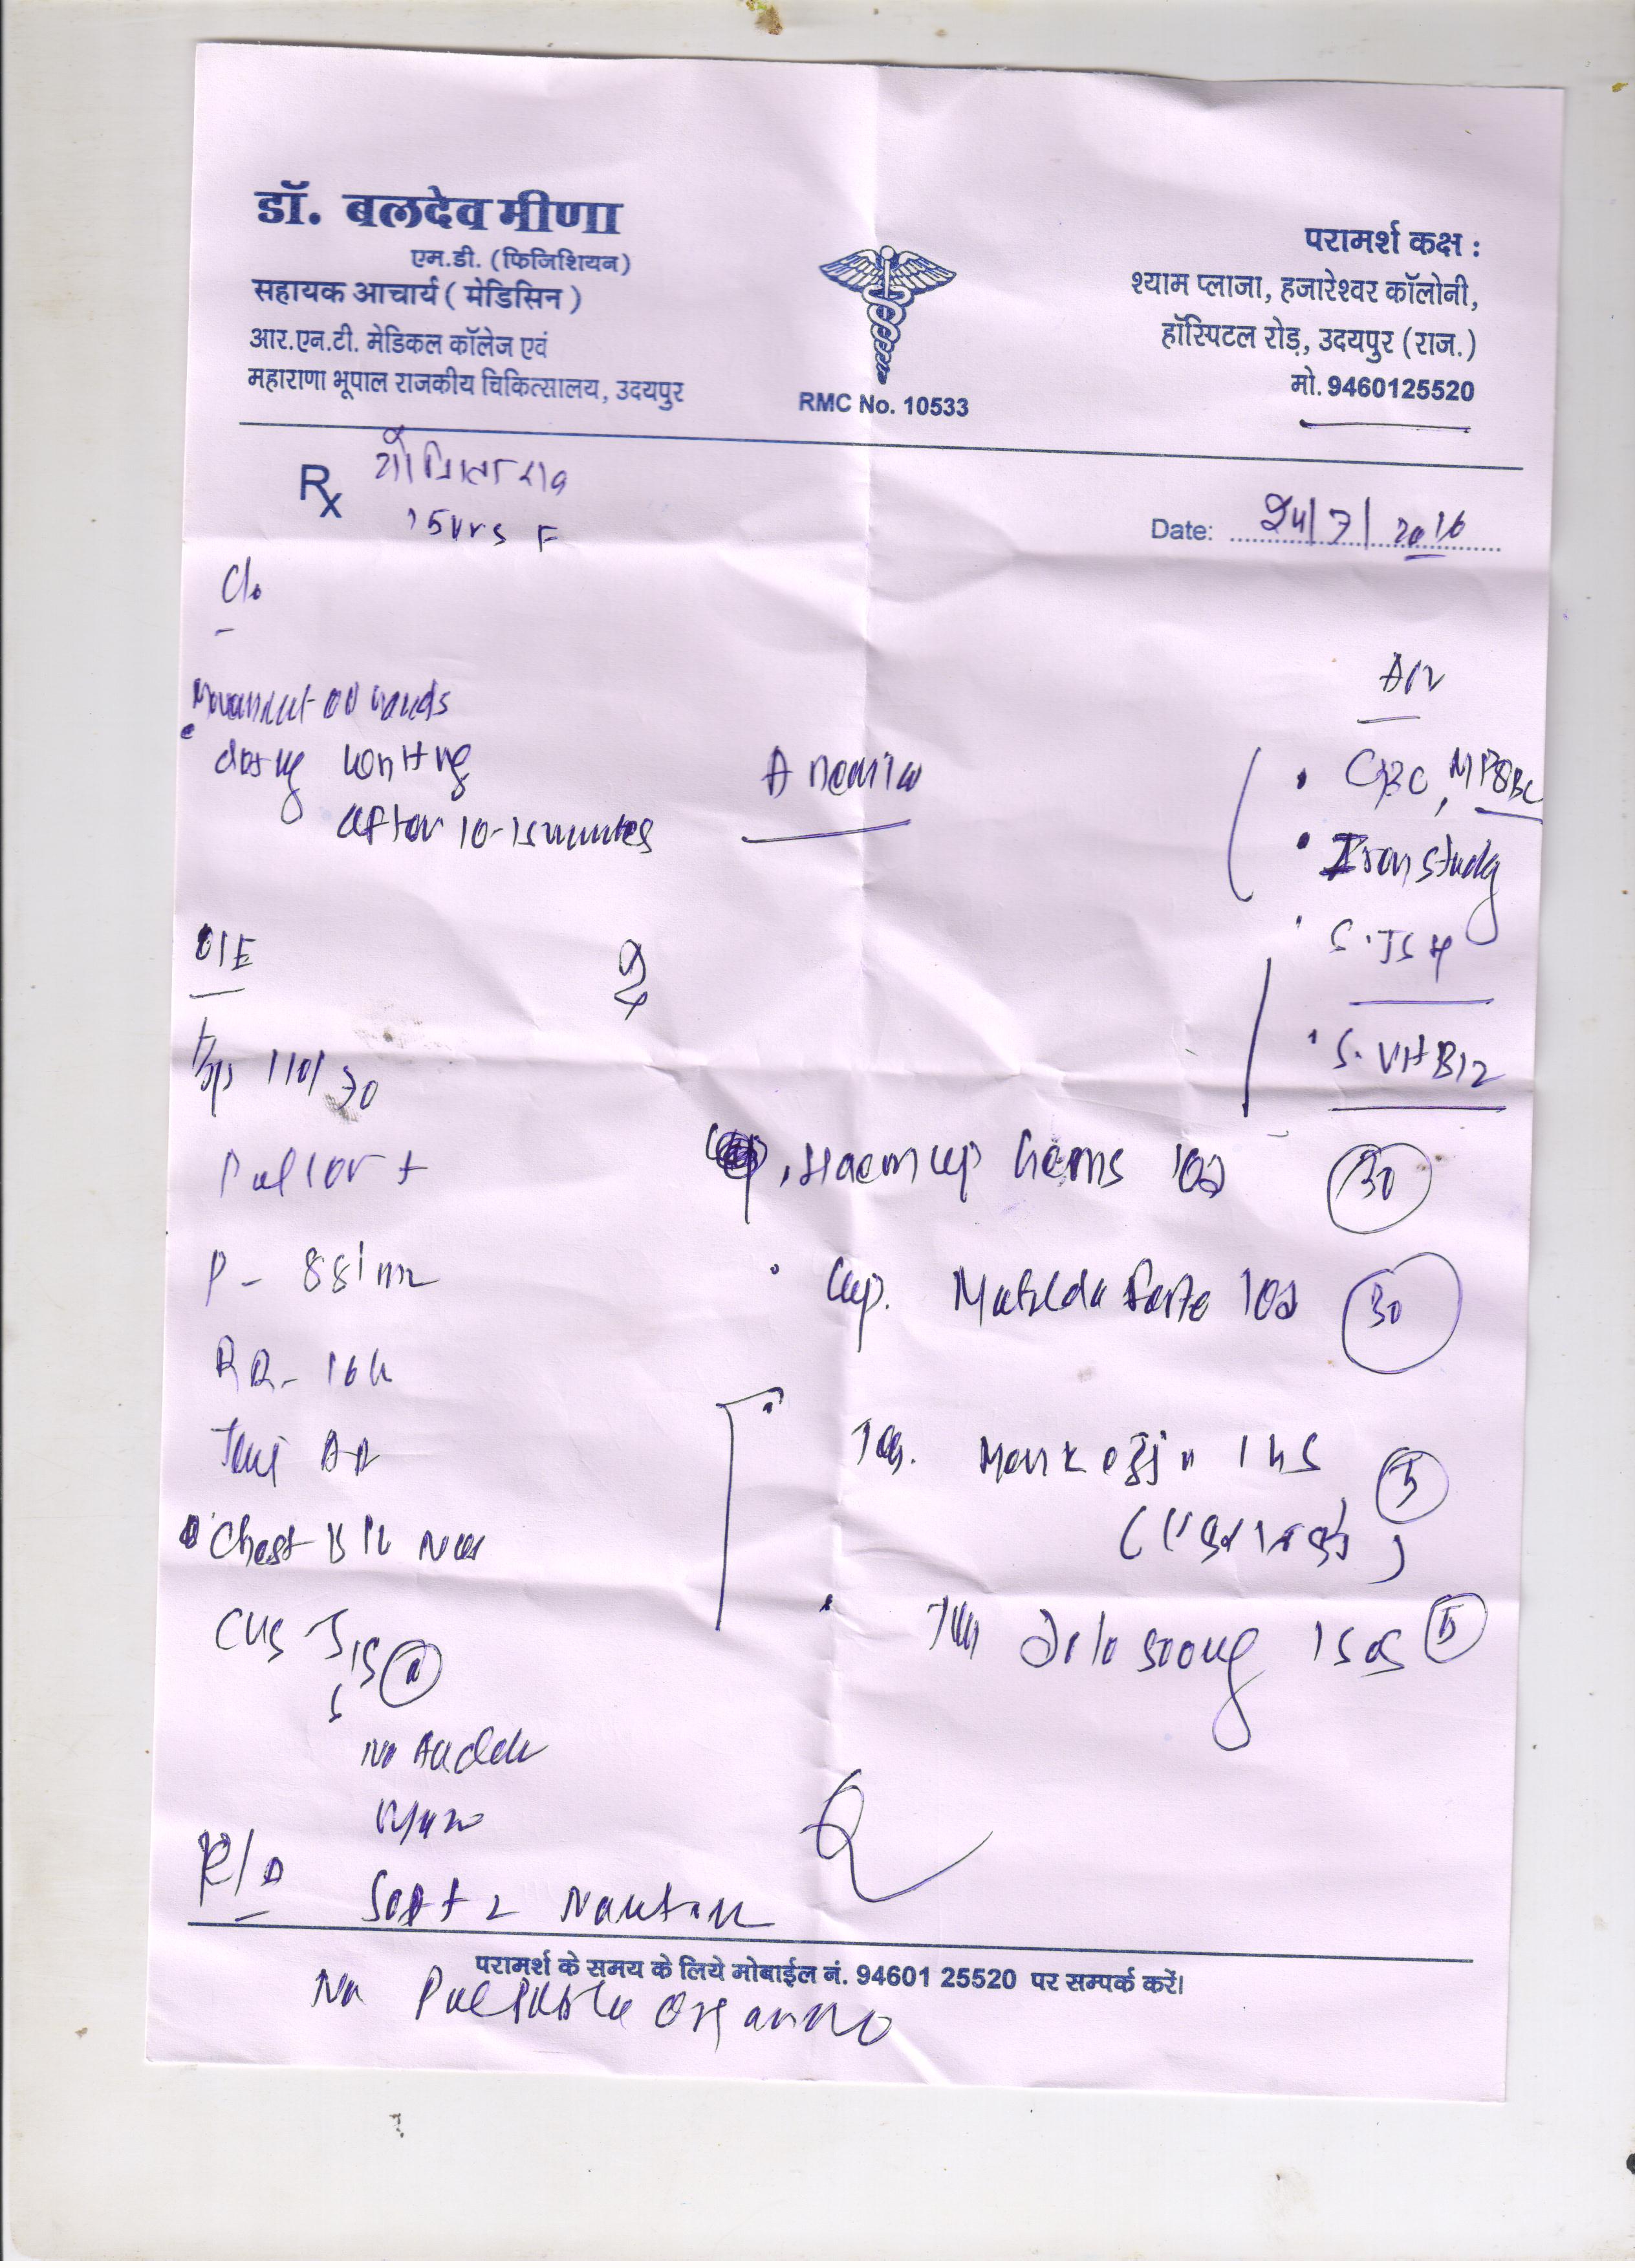 डॉ. बलदेव मीणा
एम.डी. (फिजिशियन)
सहायक आचार्य ( मेडिसिन )
आर.एन.टी. मेडिकल कॉलेज एवं
महाराणा भूपाल राजकीय चिकित्सालय, उदयपुर
RMC No. 10533
परामर्श कक्ष :
श्याम प्लाजा, हजारेश्वर कॉलोनी,
हॉस्पिटल रोड़, उदयपुर (राज.)
मो. 9460125520
Rx
15 yrs F
Date: 24/7/2016
C/o
Movement of hands
during writing
after 10-15 minutes
Anemia
Adv
CBC, MP
Iron study
S. TSH
S. Vit B12
O/E
Bp 110/70
Pallor +
P - 88/m
RR - 16
Chest B/L
CVS S1S2 (N)
No
P/A
Soft
No Palpable Organ
Haem up Gems 1OD (30)
Cap. Matilda Forte 1OD (30)
Tab. 1HS (5)
Tab 1SOS (5)
परामर्श के समय के लिये मोबाईल नं. 94601 25520 पर सम्पर्क करें।